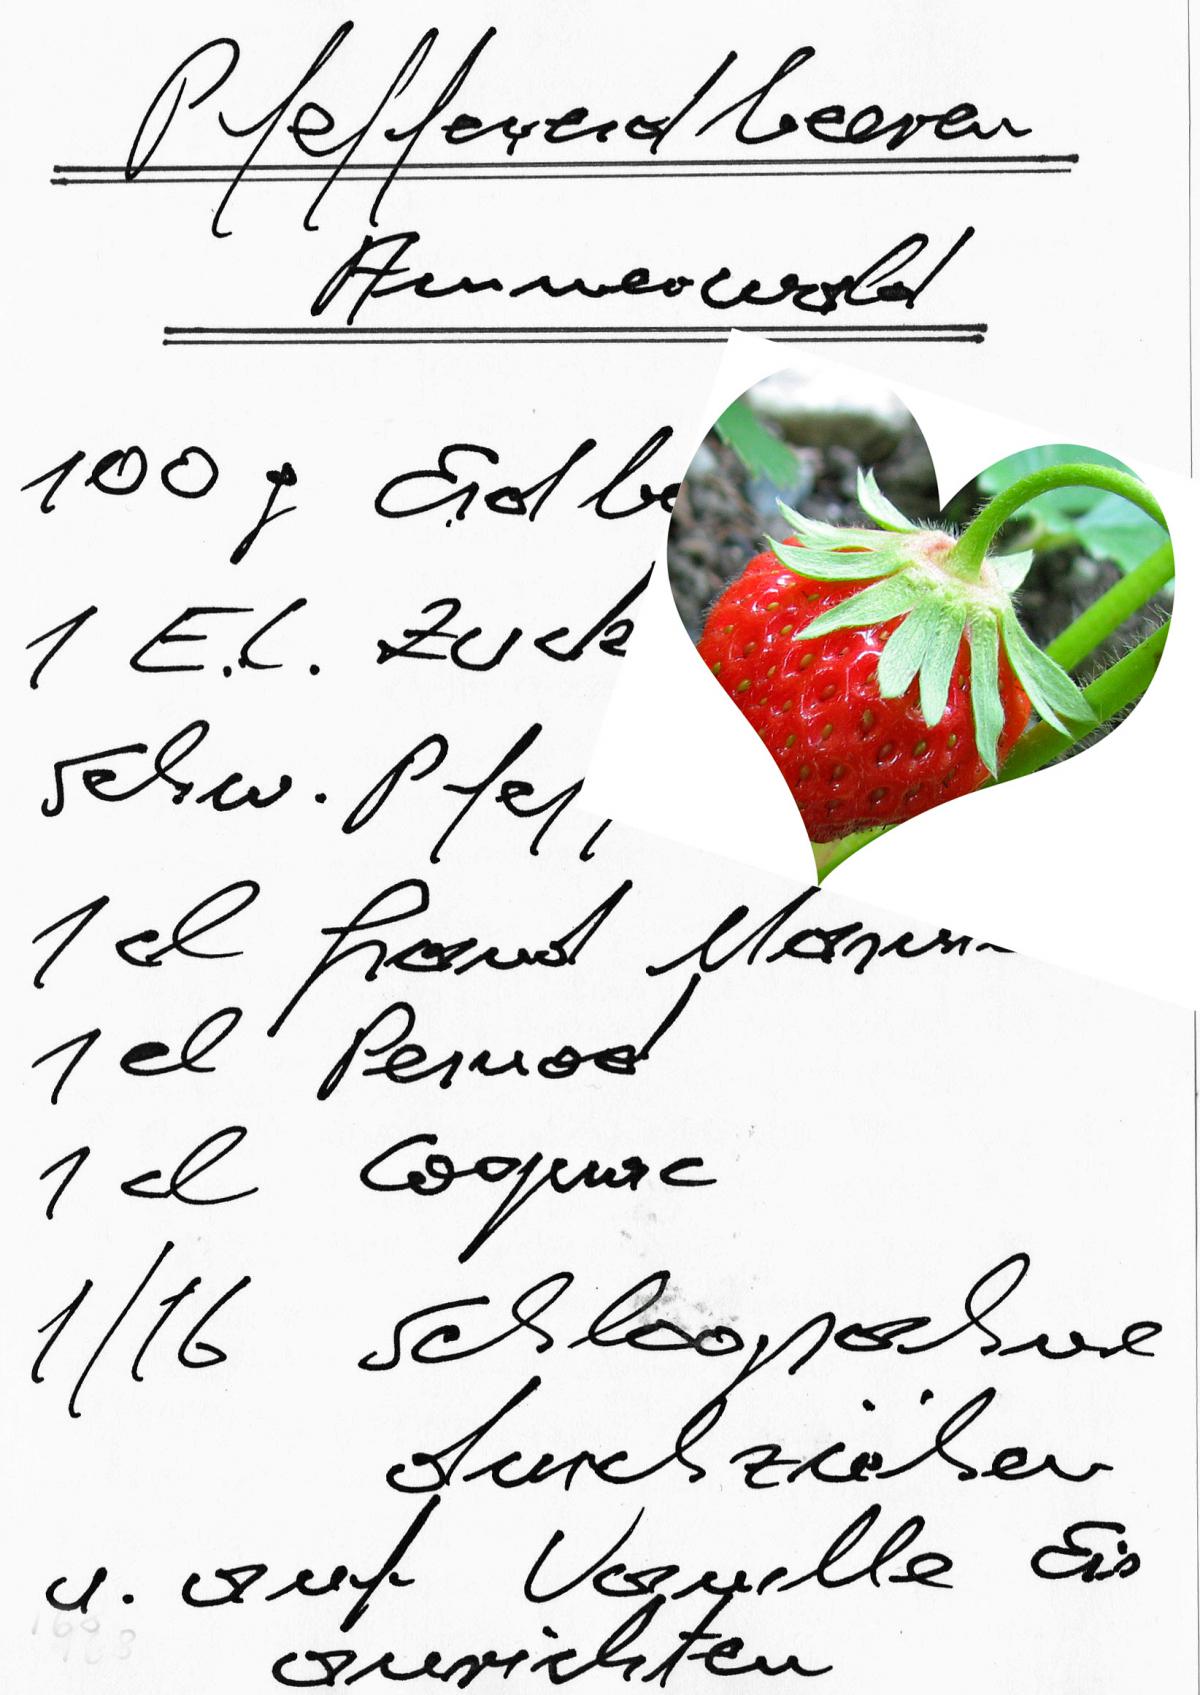 Pfeffererdbeeren
Ammerwald
100 g Erdbe
1 E.L. Zucke
schw. Pfef
1 cl Grand Marni
1 cl Pernod
1 cl Cognac
1/16 Schlagsahne
durchziehen
u. auf Vanille Eis
anrichten